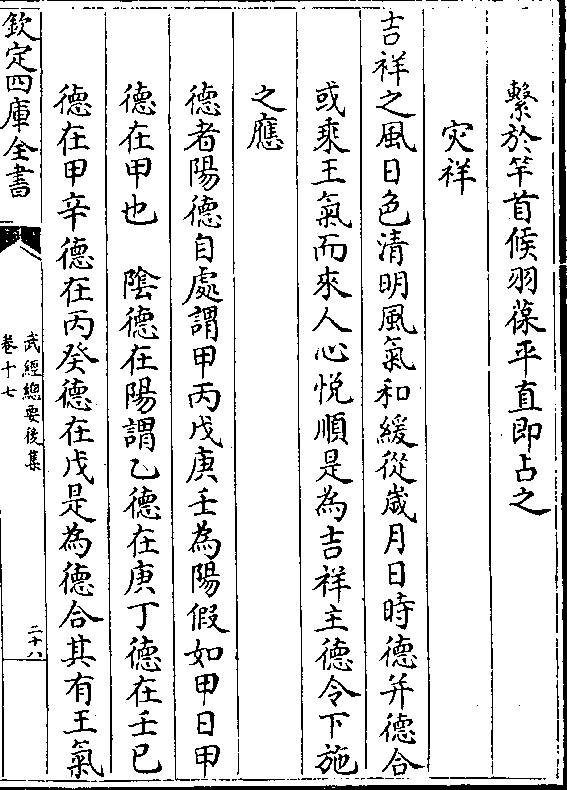 繫於竿首候羽葆平直即占之
灾祥
吉祥之風日色清明風氣和緩從歲月日時德并德合
或乘王氣而來人心悅順是為吉祥主德令下施
之應
德者陽德自處謂甲丙戊庚壬為陽假如甲日甲
德在甲也　陰德在陽謂乙德在庚丁德在壬已
德在甲辛德在丙癸德在戊是為德合其有王氣
欽定四庫全書
武經總要後集
卷十七
二十八